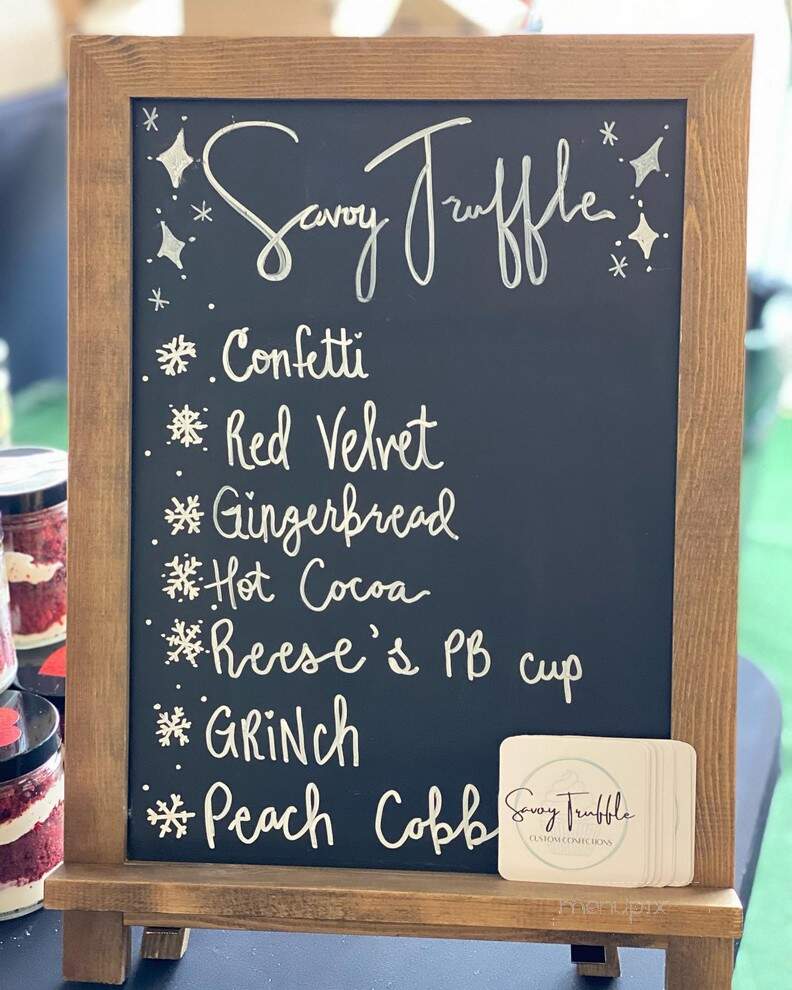 Savoy Truffle
Confetti
Red Velvet
Gingerbread
Hot Cocoa
Reese's PB cup
GRiNch
Peach Cobb
Savoy Truffle
CUSTOM CONFECTIONS
menupix